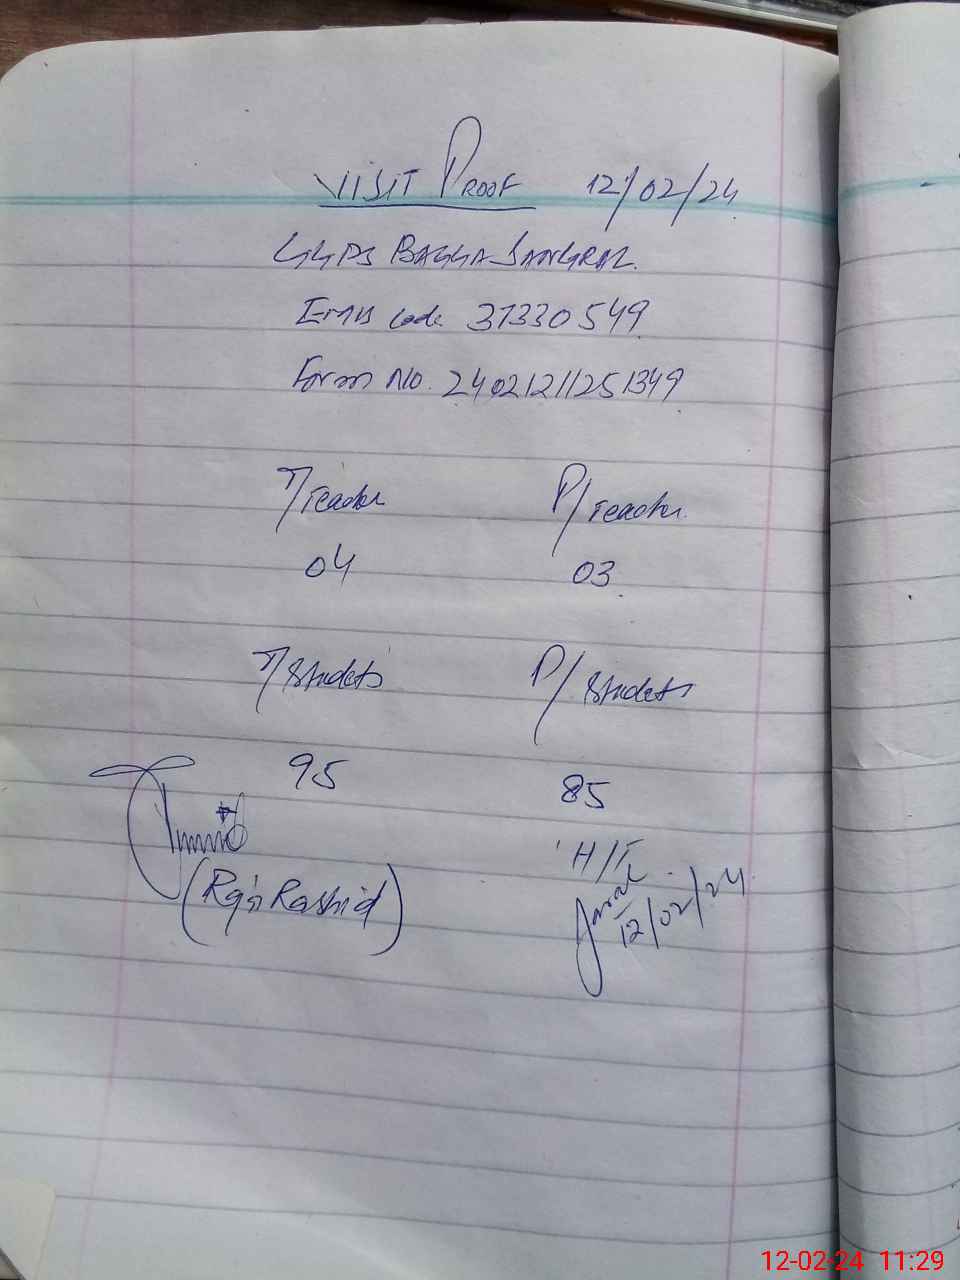 VISIT PROOF 12/02/24
GGPS BAGGA SANGRAL.
EMIS code 37330549
Form No. 2402121125 1349
T/Teacher P/Teacher.
04 03
T/Students P/Students
95 85
H/T
(Raja Rashid)
12/02/24
12-02-24 11:29